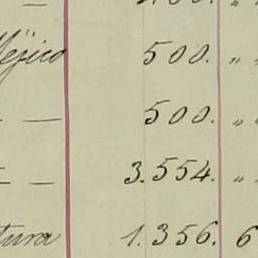 — 
Méjico 500. " "
— — 500. " "
— — 3.554. " "
1.356. 6